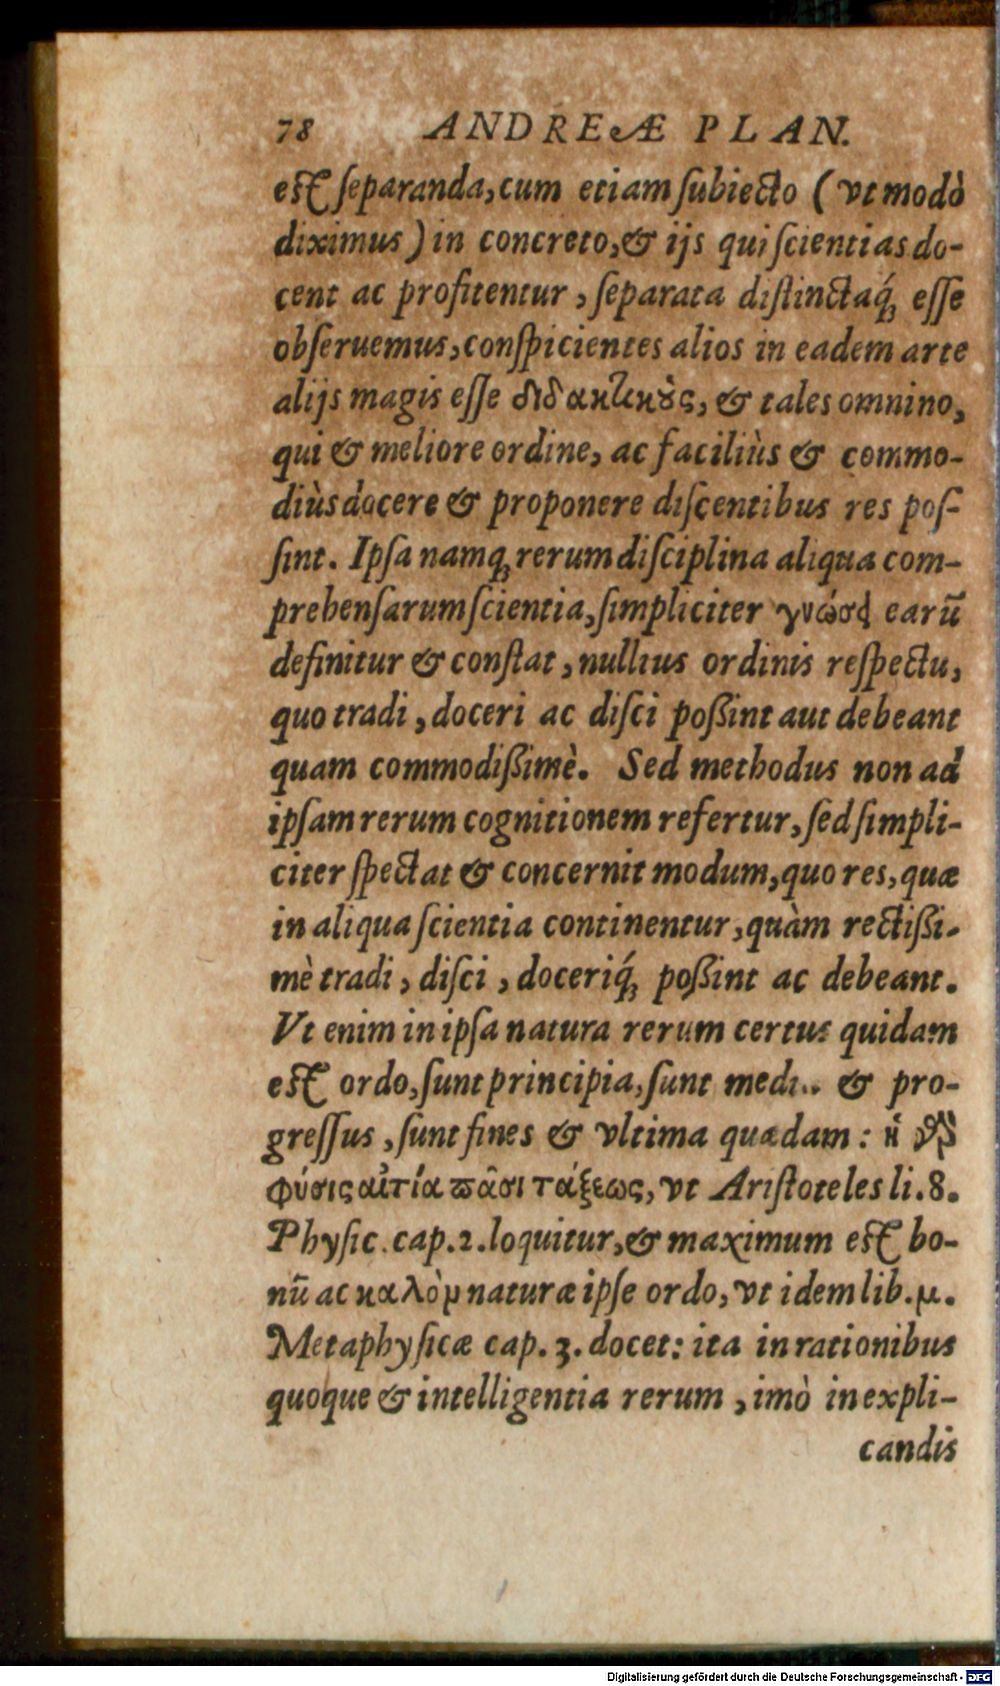 78 ANDREÆ PLAN.
est separanda, cum etiam subiecto (vt modò
diximus) in concreto, & ijs qui scientias do-
cent ac profitentur, separata distinctaq́; esse
obseruemus, conspicientes alios in eadem arte
alijs magis esse διδακτικοὺς, & tales omnino,
qui & meliore ordine, ac faciliùs & commo-
diùs docere & proponere discentibus res pos-
sint. Ipsa namq; rerum disciplina aliqua com-
prehensarum scientia, simpliciter γνώσει earū
definitur & constat, nullius ordinis respectu,
quo tradi, doceri ac disci poßint aut debeant
quam commodißimè. Sed methodus non ad
ipsam rerum cognitionem refertur, sed simpli-
citer spectat & concernit modum, quo res, quæ
in aliqua scientia continentur, quàm rectißi-
mè tradi, disci, doceriq́; poßint ac debeant.
Vt enim in ipsa natura rerum certus quidam
est ordo, sunt principia, sunt & pro-
gressus, sunt fines & vltima quædam: ἡ γὰρ
φύσις αἰτία πᾶσι τάξεως, vt Aristoteles li. 8.
Physic. cap. 2. loquitur, & maximum est bo-
nū ac καλὸν naturæ ipse ordo, vt idem lib. μ.
Metaphysicæ cap. 3. docet: ita in rationibus
quoque & intelligentia rerum, imò in expli-
candis
Digitalisierung gefördert durch die Deutsche Forschungsgemeinschaft - DFG